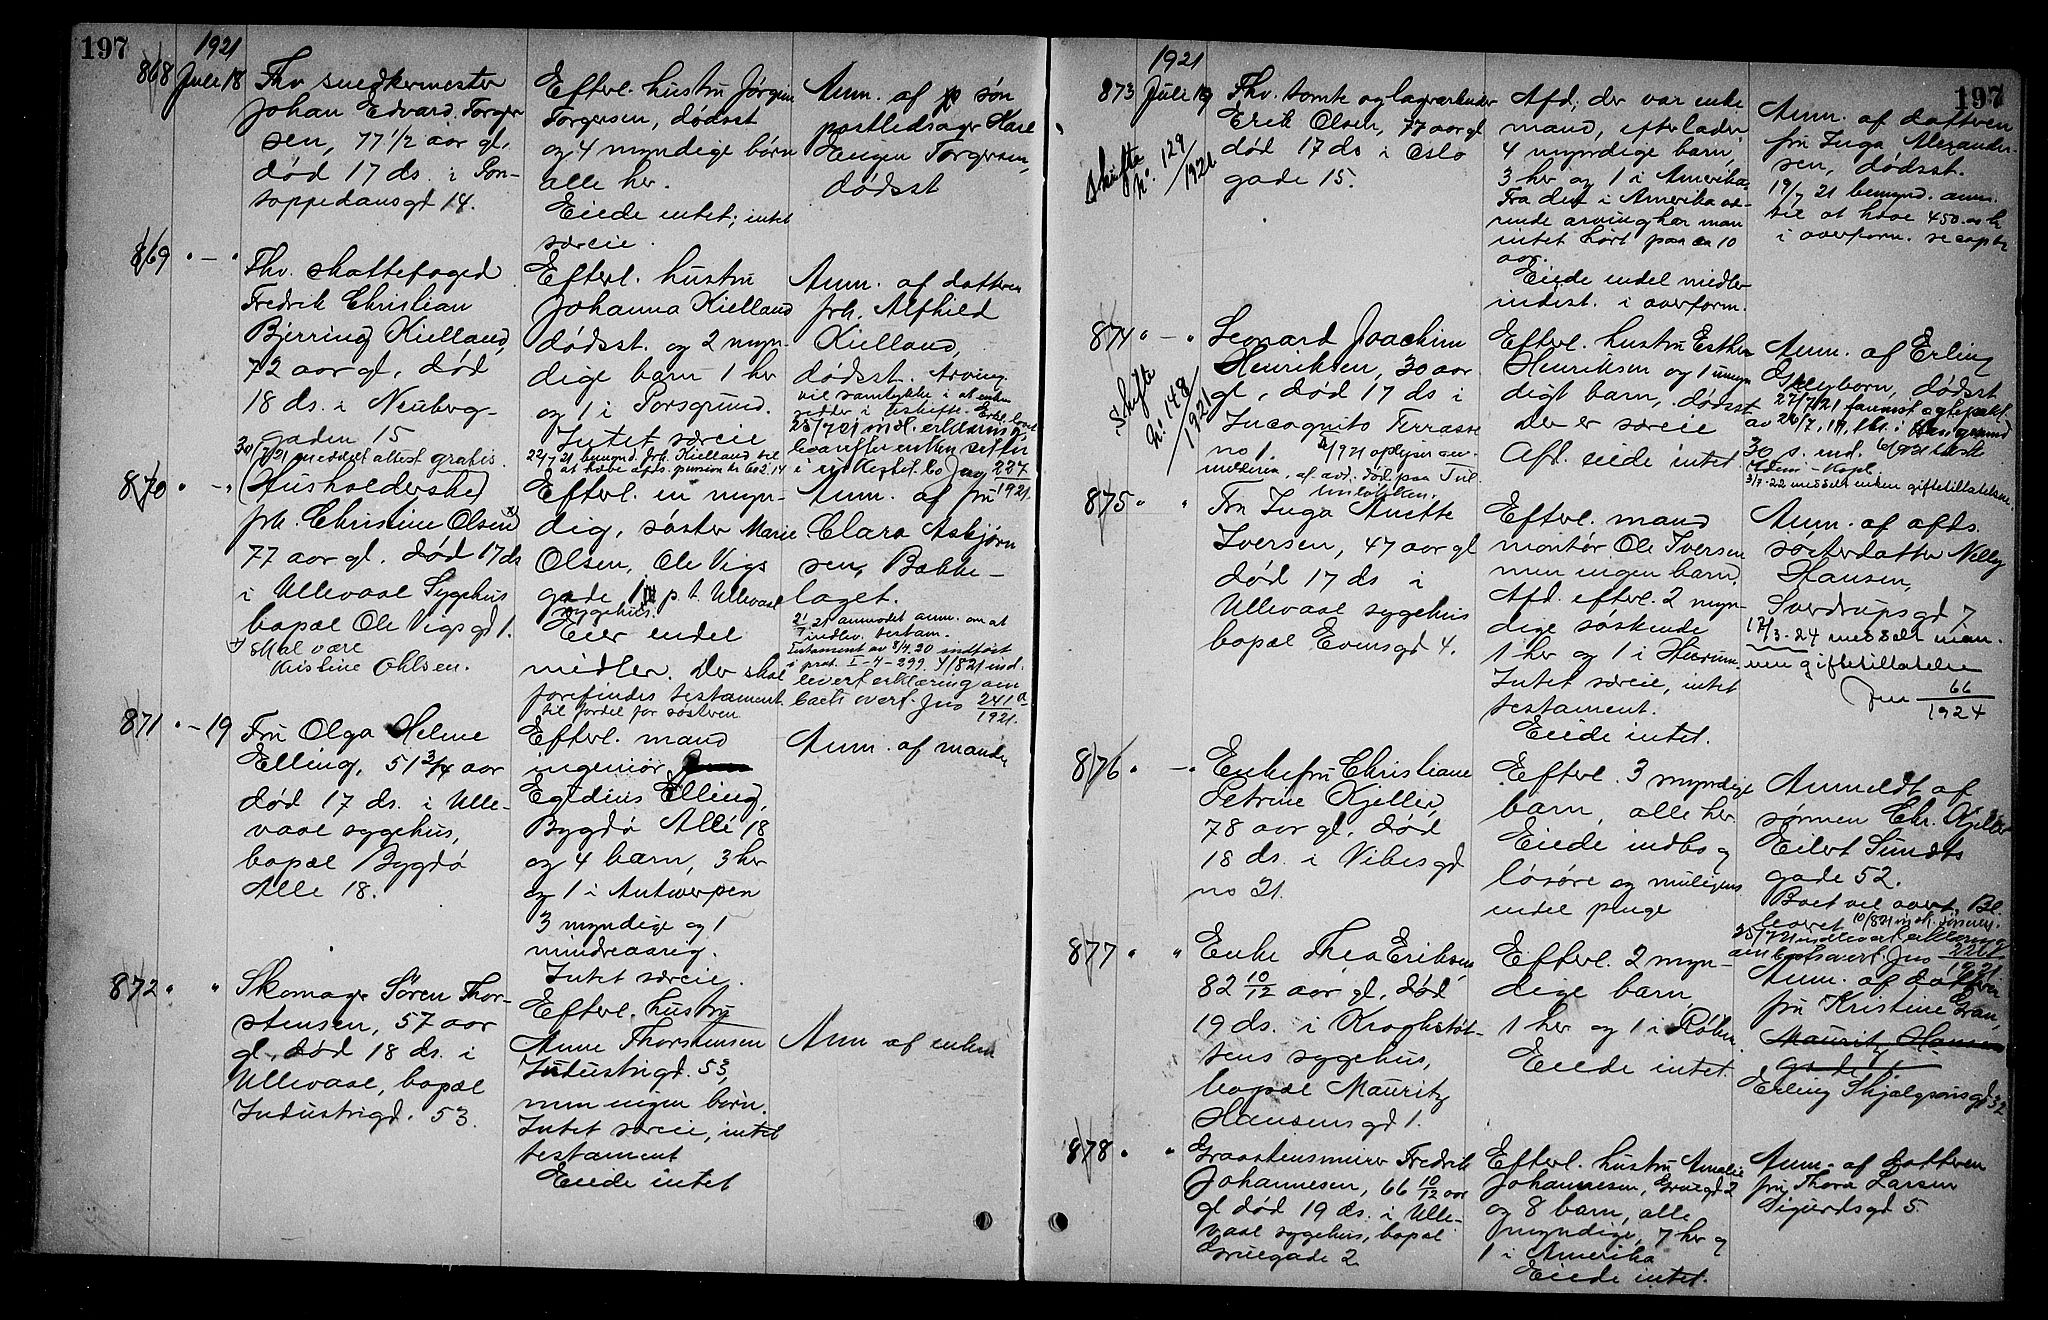 197
1921
868 Juli 18
Fhv. snedkermester
Johan Edvard Torger
sen, 77 1/2 aar gl.
død 17 ds. i Pon-
toppedansgd 14.
Efterl. hustru Jørgine
Torgersen, dødsst
og 4 myndige børn
alle her.
Eiede intet; intet
særeie.
Anm. af søn
postledsager Karl
Torgersen,
dødsst
869 " — "
Fhv. skattefoged
Fredrik Christian
Bjerring Kielland,
72 aar gl, død
18 ds. i Neuberg-
gaden 15
30/7 21 meddelt attest gratis.
Efterl. hustru
Johanna Kielland
dødsst. og 2 myn-
dige barn 1 her
og 1 i Porsgrund.
Intet særeie
22/7 21 bemynd. frk. Kielland til
at hæve afds. pension kr 602.14
Anm. af datteren
frk. Alfhild
Kielland,
dødsst. Arving
vil samtykke i at enken
sidder i uskifte.
25/7 21 indl. erklæring
i uskiftet bo Jno 224/1921
870 " — "
(Husholderske)
frk. Christine Olsen
77 aar gl. død 17 ds
i Ullevaal Sygehus
bopæl Ole Vigsgd 1.
skal være
Kristine Ohlsen.
Efterl. en myn-
dig, søster Marie
Olsen, Ole Vigs
gade 1 p.t. Ullevaal
sygehus.
Eier endel
midler. Der skal
forefindes testament
til fordel for søsteren
Anm. af fru
Clara Asbjørn
sen, Bække-
laget.
21/7 21 anmodet anm. om at
indlev. testam.
Testament av 8/4.20 indført
i prot. I-4-299. 4/8 21 ind
levert erklæring om
boets overt. Jno 241/1921.
871 " — 19
Fru Olga Helene
Elling, 51 3/4 aar
død 17 ds. i Ulle-
vaal sygehus,
bopæl Bygdø
Alle 18.
Efterl. mand
ingeniør
Egidius Elling,
Bygdø Allé 18
og 4 barn, 3 her
og 1 i Antwerpen
3 myndige og 1
mindreaarig.
Intet særeie.
Anm. af manden
872 " "
Skomager Søren Thor-
stensen, 57 aar
gl, død 18 ds. i
Ullevaal, bopæl
Industrigd. 53.
Efterl. hustru
Anne Thorstensen
Industrigd. 53,
men ingen børn.
Intet særeie, intet
testament
Eiede intet
Anm af enken
197
1921
873 Juli 19
Skifte
No. 129/1921
Fhv. tomte og lagerarbeider
Erik Olsen, 77 aar gl
død 17 ds i Oslo
gade 15.
Afd, der var enke
mand, efterlader
4 myndige barn,
3 her og 1 i Amerika
Fra den i Amerika væ-
rende arving har man
intet hørt paa ca 10
aar.
Eiede endel midler
indest. i overform.
Anm. af datteren
fru Inga Alexander-
sen, dødsst.
19/7 21 bemynd. anm.
til at hæve 450
i overform.
874 " — "
Skifte
No. 148/1921
Leonard Joachim
Henriksen, 30 aar
gl, død 17 ds i
Incognito Terrasse
no 1.
Efterl. hustru Esther
Henriksen og 1 umyn
digt barn, dødsst
der er særeie
Afd. eiede intet.
Anm. af Erling
dødsst
27/7 21
3/7-22 meddelt enken giftetilladelse
875 " "
Fru Inga Anette
Iversen, 47 aar gl
død 17 ds i
Ullevaal sygehus
bopæl Evensgd 4.
Efterl. mand
montør Ole Iversen
men ingen barn.
Afd. efterl. 2 myn-
dige søskende
1 her og 1 i Hurum.
Intet særeie, intet
testament.
Eiede intet.
Anm. af afds.
søsterdatter Nelly
Hansen,
Sverdrupsgd 7.
17/3-24 meddelt man-
nen giftetillatelse
Jno 66/1924
876 " — "
Enkefru Christiane
Petrine Kjeller,
78 aar gl. død
18 ds. i Vibesgd
no 21.
Efterl. 3 myndige
barn, alle her.
Eiede indbo og
løsøre og muligens
endel penge
Anmeldt af
sønnen Chr. Kjeller
Eilert Sundts
gade 52.
Boet vil overt.
25/7 21 indlevert erklæring
om boets overt. Jno 221/1921
877 " "
Enke Thea Eriksen
82 10/12 aar gl. død
19 ds. i Kroghstøt-
tens sygehus,
bopæl Mauritz
Hansensgd 1.
Efterl. 2 myn-
dige barn,
1 her og 1 i Røken.
Eiede intet.
Anm. af datteren
fru Kristine Gran,
Mauritz Hansens
gade 1
Erling Skjalgsønsgd 32
878 " "
Graastensmurer Fredrik
Johannesen, 66 10/12 aar
gl død 19 ds. i Ulle-
vaal sygehus, bopæl
Gruegade 2
Efterl. hustru Amalie
Johannesen, Gruegd 2
og 8 barn, alle
myndige, 7 her og
1 i Amerika
Eiede intet.
Anm. af datteren
fru Thora Larsen
Sigurdsgd 5.